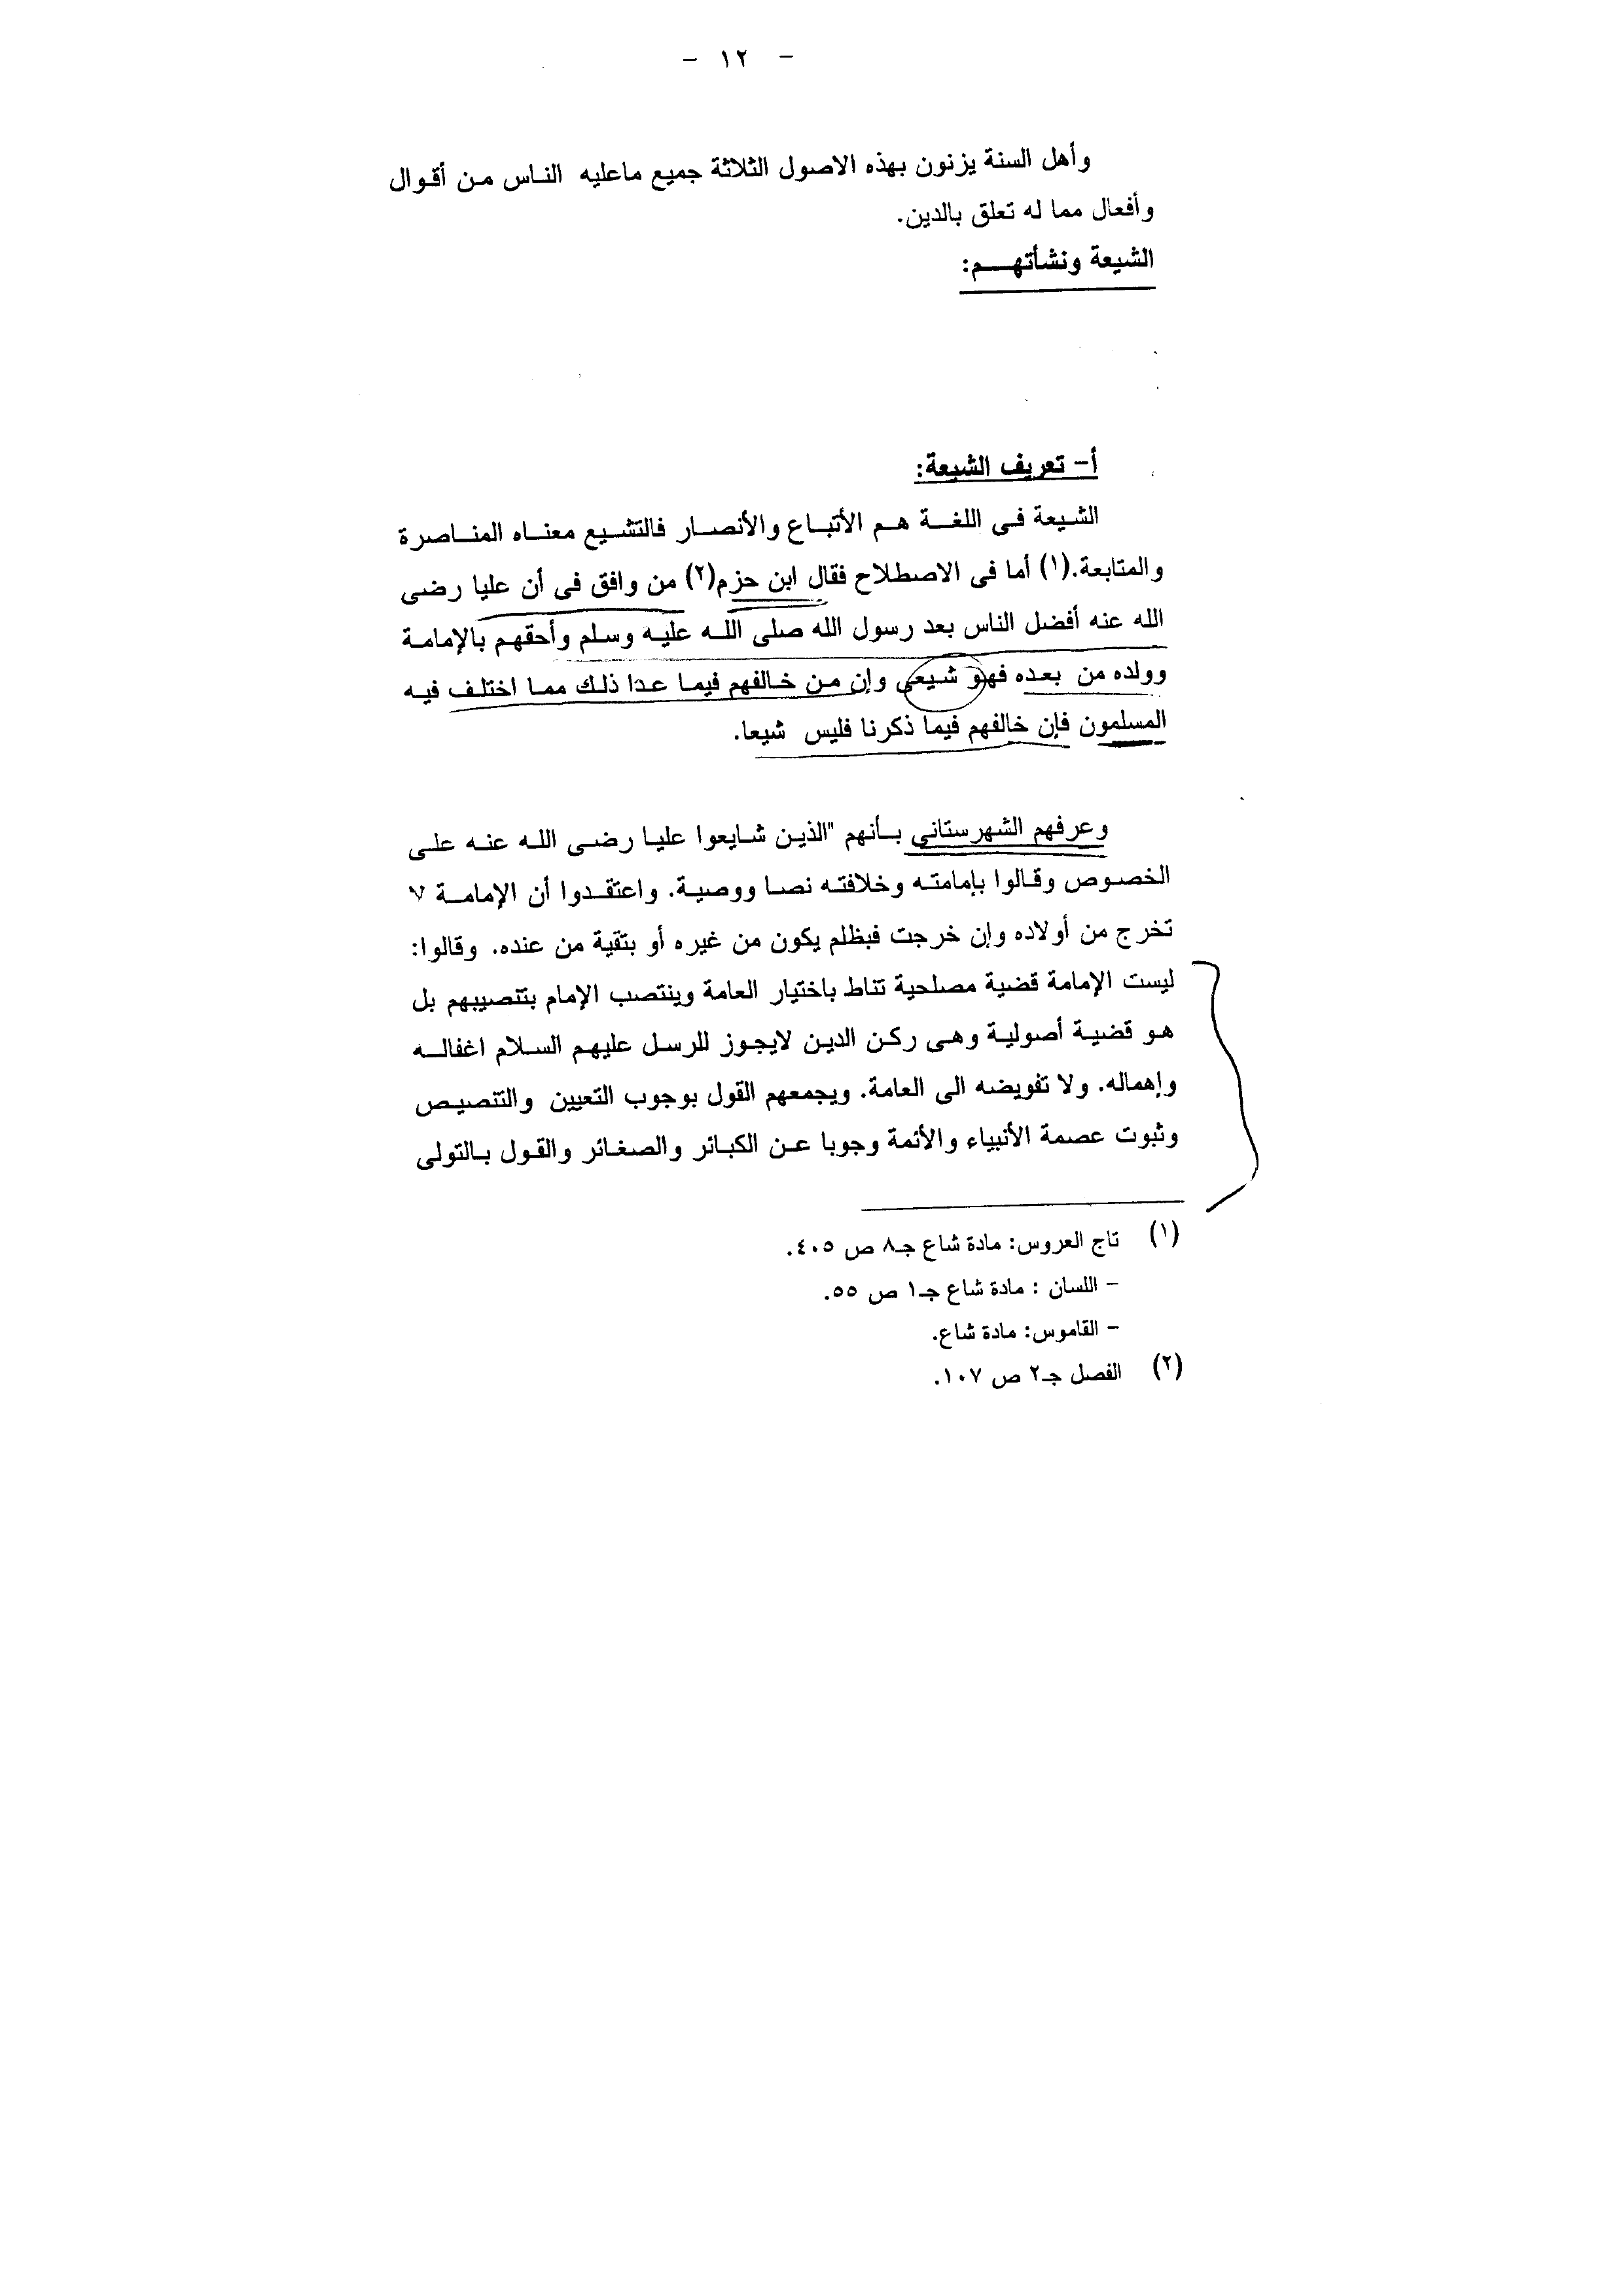 - ١٢ -
وأهل السنة يزنون بهذه الاصول الثلاثة جميع ماعليه الناس من أقوال
وأفعال مما له تعلق بالدين.
الشيعة ونشأتهم:
أ- تعريف الشيعة:
الشيعة فى اللغة هم الأتباع والأنصار فالتشيع معناه المناصرة
والمتابعة.(١) أما فى الاصطلاح فقال ابن حزم(٢) من وافق فى أن عليا رضى
الله عنه أفضل الناس بعد رسول الله صلى الله عليه وسلم وأحقهم بالإمامة
وولده من بعده فهو شيعى وإن من خالفهم فيما عدا ذلك مما اختلف فيه
المسلمون فإن خالفهم فيما ذكرنا فليس شيعا.
وعرفهم الشهرستاني بأنهم "الذين شايعوا عليا رضى الله عنه على
الخصوص وقالوا بإمامته وخلافته نصا ووصية. واعتقدوا أن الإمامة لا
تخرج من أولاده وإن خرجت فبظلم يكون من غيره أو بتقية من عنده. وقالوا:
ليست الإمامة قضية مصلحية تناط باختيار العامة وينتصب الإمام بتنصيبهم بل
هو قضية أصولية وهى ركن الدين لايجوز للرسل عليهم السلام اغفاله
وإهماله. ولا تفويضه الى العامة. ويجمعهم القول بوجوب التعيين والتنصيص
وثبوت عصمة الأنبياء والأئمة وجوبا عن الكبائر والصغائر والقول بالتولى
(١) تاج العروس: مادة شاع جـ٨ ص ٤٠٥.
- اللسان : مادة شاع جـ١ ص ٥٥.
- القاموس: مادة شاع.
(٢) الفصل جـ٢ ص ١٠٧.